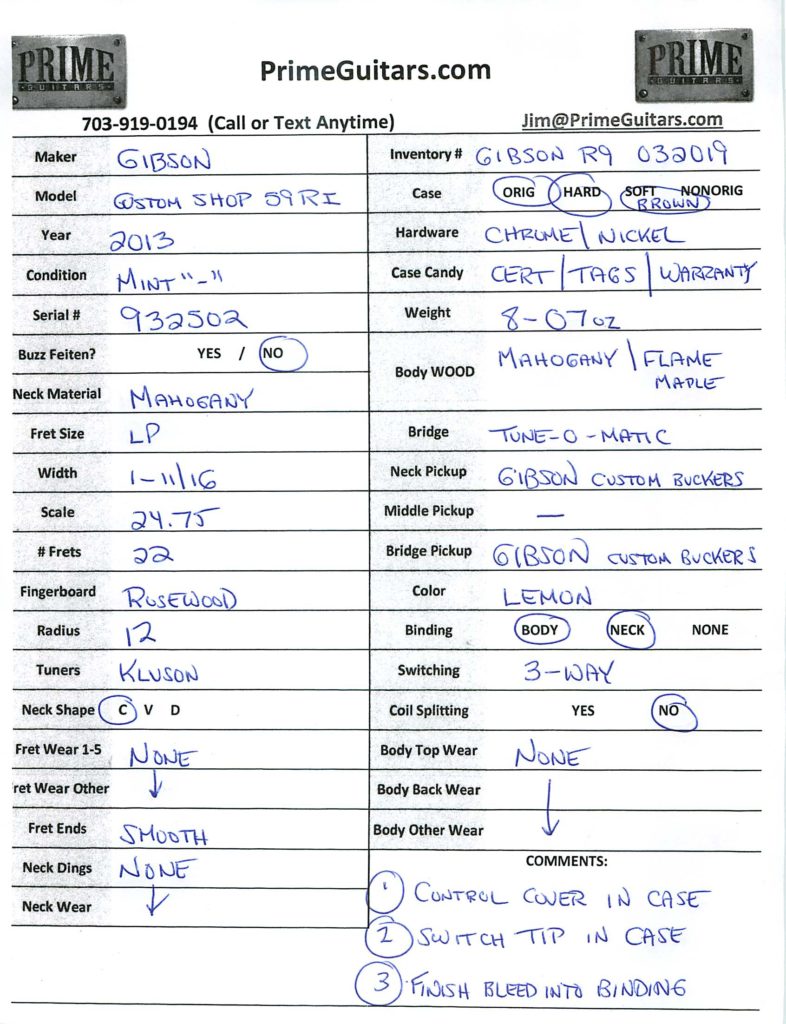 PRIME
GUITARS
PrimeGuitars.com
PRIME
GUITARS
703-919-0194 (Call or Text Anytime)
Jim@PrimeGuitars.com
Maker GIBSON
Model CUSTOM SHOP 59RI
Year 2013
Condition MINT "-"
Serial # 932502
Buzz Feiten? YES / NO
Neck Material MAHOGANY
Fret Size LP
Width 1-11/16
Scale 24.75
# Frets 22
Fingerboard ROSEWOOD
Radius 12
Tuners KLUSON
Neck Shape C V D
Fret Wear 1-5 NONE
ret Wear Other ↓
Fret Ends SMOOTH
Neck Dings NONE
Neck Wear ↓
Inventory # GIBSON R9 032019
Case ORIG HARD SOFT NONORIG
BROWN
Hardware CHROME/NICKEL
Case Candy CERT/TAGS/WARRANTY
Weight 8-07oz
Body WOOD MAHOGANY/FLAME
MAPLE
Bridge TUNE-O-MATIC
Neck Pickup GIBSON CUSTOM BUCKERS
Middle Pickup —
Bridge Pickup GIBSON CUSTOM BUCKERS
Color LEMON
Binding BODY NECK NONE
Switching 3-WAY
Coil Splitting YES NO
Body Top Wear NONE
Body Back Wear
Body Other Wear ↓
COMMENTS:
1 CONTROL COVER IN CASE
2 SWITCH TIP IN CASE
3 FINISH BLEED INTO BINDING